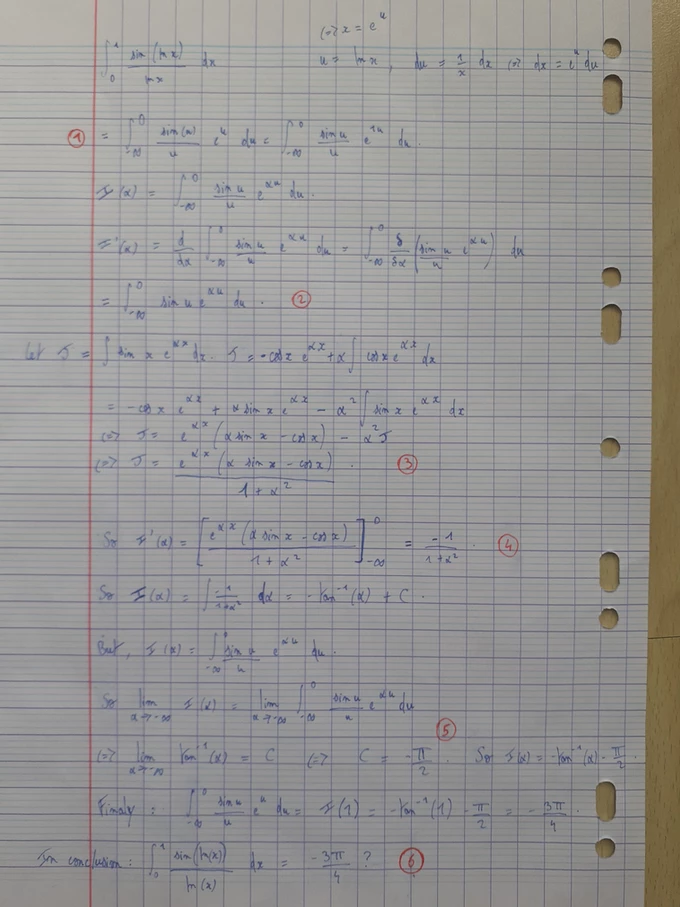 (=> x = e^u
∫_0^1 sin(ln x)/ln x dx u = ln x, du = 1/x dx (=> dx = e^u du
① = ∫_{-∞}^0 sin(u)/u e^u du = ∫_{-∞}^0 sin u/u e^{1u} du.
I(α) = ∫_{-∞}^0 sin u/u e^{αu} du.
I'(α) = d/dα ∫_{-∞}^0 sin u/u e^{αu} du = ∫_{-∞}^0 δ/δα (sin u/u e^{αu}) du
= ∫_{-∞}^0 sin u e^{αu} du. ②
Let J = ∫ sin x e^{αx} dx. J = -cos x e^{αx} + α ∫ cos x e^{αx} dx
= -cos x e^{αx} + α sin x e^{αx} - α^2 ∫ sin x e^{αx} dx
(=> J = e^{αx} (α sin x - cos x) - α^2 J
(=> J = e^{αx} (α sin x - cos x)/(1 + α^2). ③
So I'(α) = [e^{αx} (α sin x - cos x)/(1 + α^2)]_{-∞}^0 = -1/(1+α^2). ④
So I(α) = ∫ -1/(1+α^2) dα = -tan^{-1}(α) + C.
But, I(α) = ∫_{-∞}^0 sin u/u e^{αu} du.
So lim_{α→-∞} I(α) = lim_{α→-∞} ∫_{-∞}^0 sin u/u e^{αu} du
⑤
(=> lim_{α→-∞} tan^{-1}(α) = C (=> C = -π/2. So I(α) = -tan^{-1}(α) - π/2.
Finaly: ∫_{-∞}^0 sin u/u e^u du = I(1) = -tan^{-1}(1) - π/2 = -3π/4.
In conclusion: ∫_0^1 sin(ln(x))/ln(x) dx = -3π/4 ? ⑥